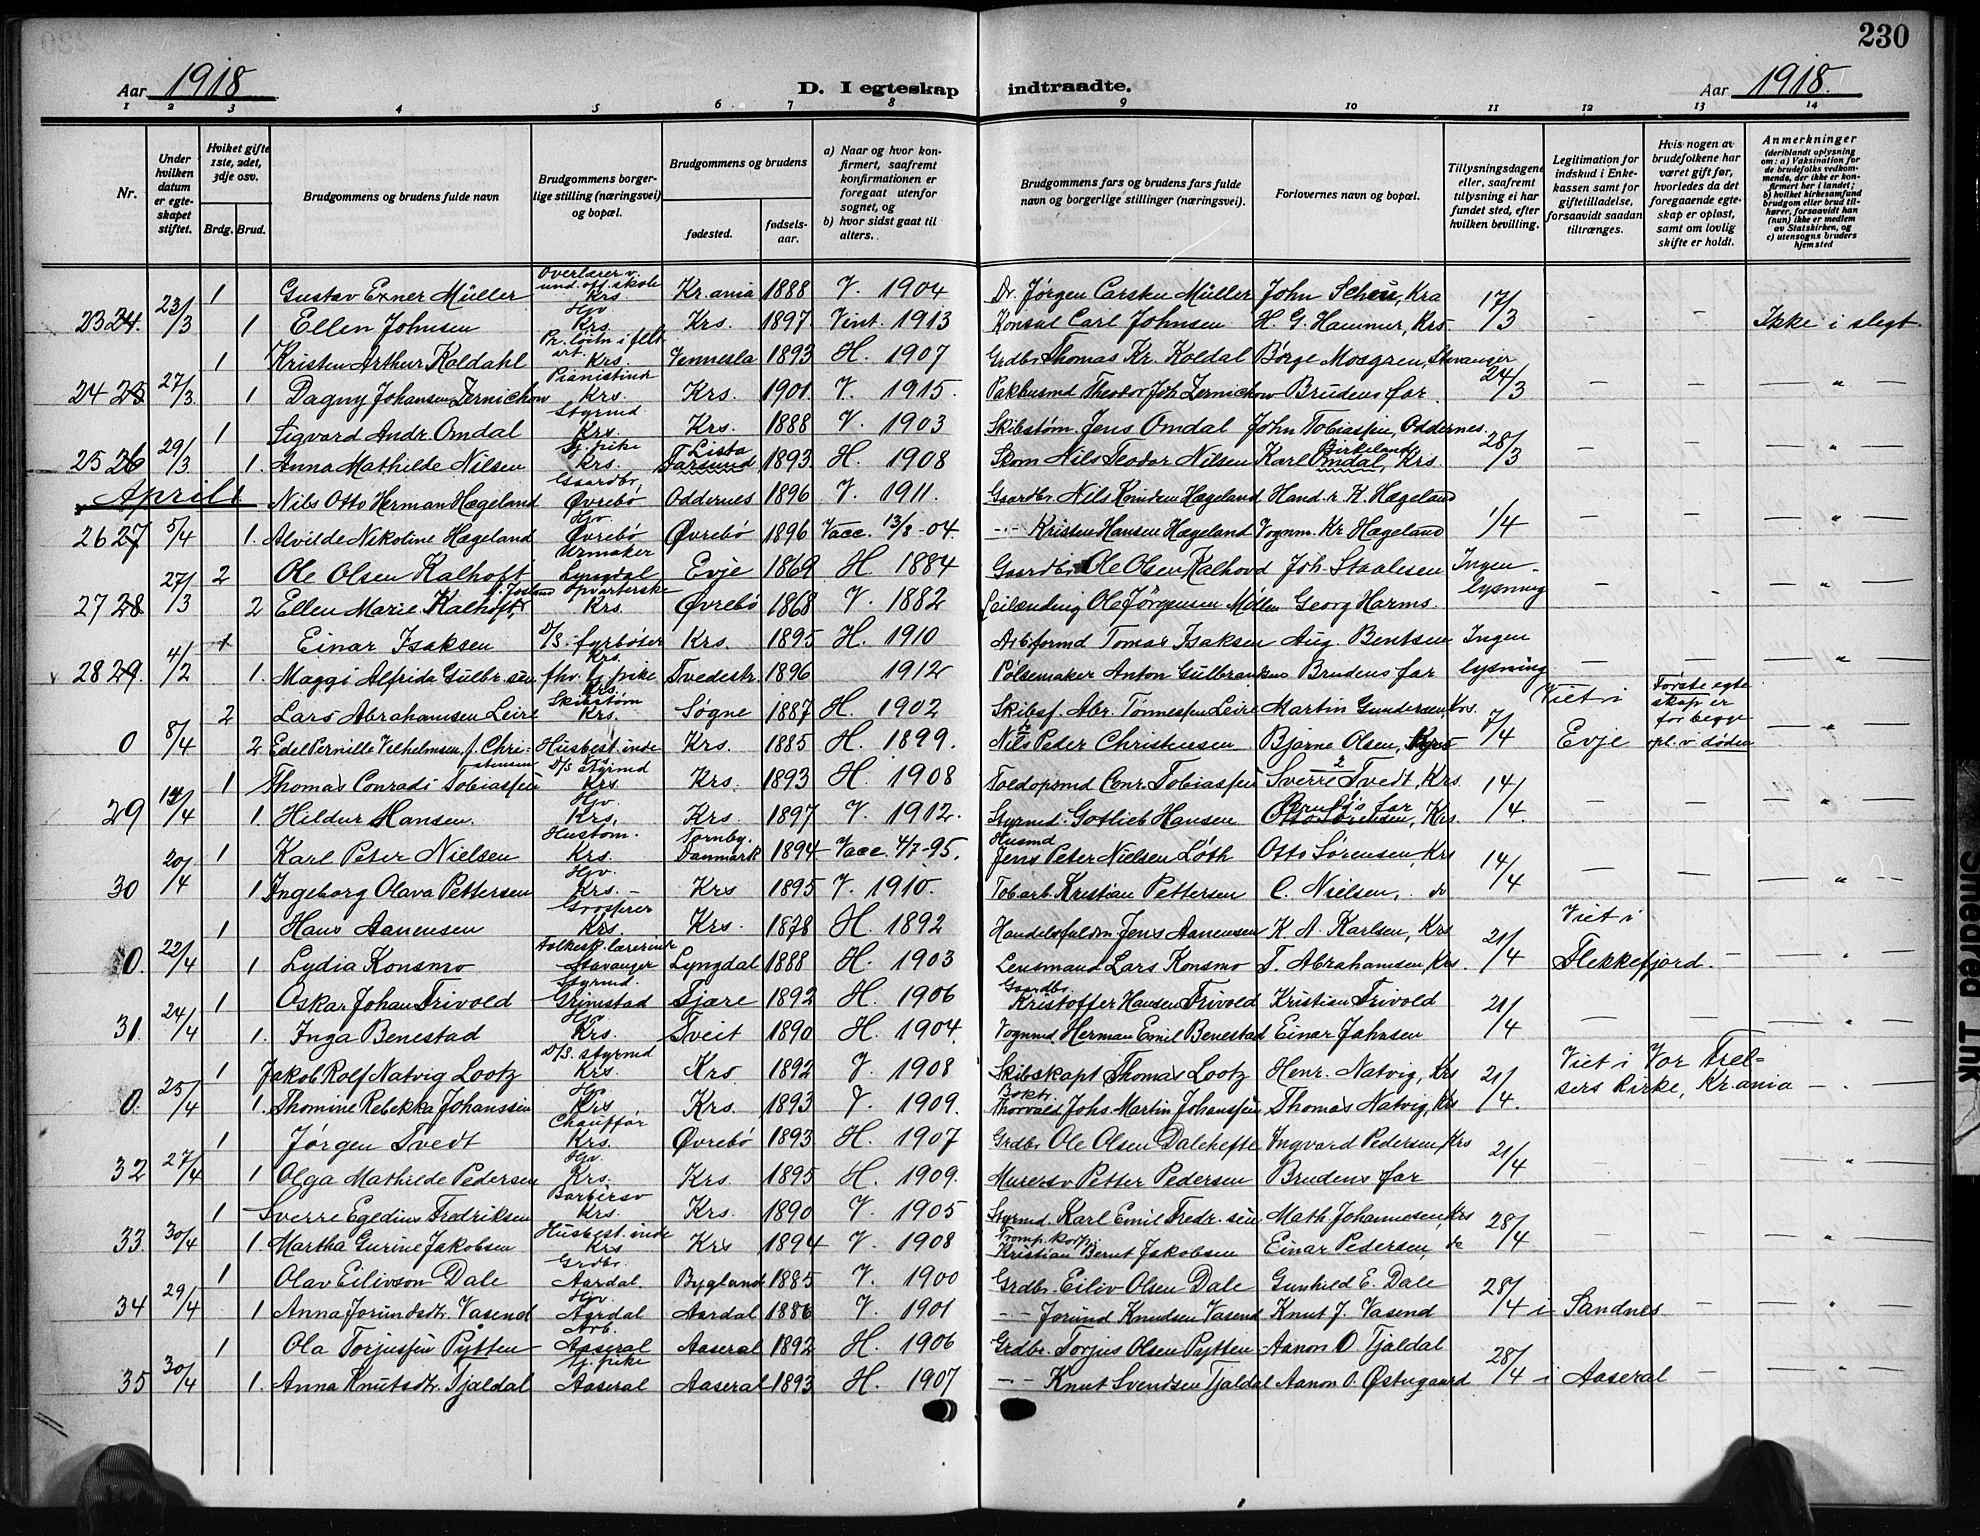 230
Aar 1918 D. I egteskap indtraadte. Aar 1918.
1 2 3 4 5 6 7 8 9 10 11 12 13 14
Nr.
Under hvilken datum er egte-skapet stiftet.
Hviket gifte 1ste, 2det, 3dje osv.
Brdg. Brud.
Brudgommens og brudens fulde navn
Brudgommens borger-lige stilling (næringsvei) og bopæl.
Brudgommens og brudens
fødested.
fødsels-aar.
a) Naar og hvor kon-firmert, saafremt konfirmationen er foregaat utenfor sognet, og
b) hvor sidst gaat til alters.
Brudgommens fars og brudens fars fulde navn og borgerlige stillinger (næringsvei).
Forlovernes navn og bopæl.
Tillysningsdagene eller, saafremt tillysning ei har fundet sted, efter hvilken bevilling.
Legitimation for indskud i Enke-kassen samt for giftetilladelse, forsaavidt saadan tiltrænges.
Hvis nogen av brudefolkene har været gift før, hvorledes da det foregaaende egte-skap er opløst, samt om lovlig skifte er holdt.
Anmerkninger
(deriblandt oplysning om: a) Vaksination for de brudefolks vedkom-mende, der ikke er kon-firmert her i landet; b) hvilket kirkesamfund brudgom eller brud til-hører, forsaavidt han (hun) ikke er medlem av Statskirken, og c) utensogns bruders hjemsted
Overlærer v. und. off. skole
1 Gustav Exner Müller Krs Kr.ania 1888 V. 1904 Dr. Jørgen Carsten Müller John Scheie, Kra
23 24. 23/3 1 Ellen Johnsen Hjv Krs. Krs. 1897 Vint. 1913 Konsul Carl Johnsen H. G. Hammer, Krs 17/3 — — Ikke i slegt.
1 Kristen Arthur Koldahl Pr. løitn i felt art. Krs. Vennesla 1893 H. 1907 Grdbr Thomas Kr. Koldal Børge Mosgren, Stavanger
24 25 27/3 1 Dagny Johansen Zernichow Pianistinde Krs. Krs. 1901 V. 1915. Pakhusmd Theodor Joh. Zernichow Brudens far 24/3 — — — " —
1 Sigvard Andr. Omdal Styrmd. Krs. Krs. 1888 V. 1903 Skibstøm. Jens Omdal John Tobiassen, Oddernes.
25 26 29/3 1. Anna Mathilde Nilsen Tj. pike Krs. Lista Farsund 1893 H. 1908 Skom Nils Teodor Nilsen Karl Birkeland Omdal, Krs 28/3 — — — " —
April 1 Nils Otto Herman Hægeland Gaardbr, Øvrebø Oddernes 1896 V. 1911. Gaardbr. Nils Knudsen Hægeland Hand. r. K. Hægeland
26 27 5/4 1. Alvilde Nikoline Hægeland Hjv. Øvrebø Øvrebø 1896 Vacc. 13/8-04. —"— Kristen Hansen Hægeland Vognm. Kr Hægeland 1/4 — — — " —
2 Ole Olsen Kalhoft Urmaker Lyngdal Evje 1869 H 1884 Gaardbr Ole Olsen Kalhovd Joh. Staalesen Ingen
27 28 27/3 2 Ellen Marie Kalhoft Opvarterske Krs. Øvrebø 1868 V. 1882 Leilænding Ole Jørgensen Møllen Georg Harms. lysning — - — " —
1 Einar Isaksen D/S. fyrbøter Krs. Krs. 1895 H. 1910 Arbformd Tomas Isaksen Aug. Bentsen Ingen
28 29. 4/2 1. Maggi Alfrida Gulbr.sen fhv. tj. pike Krs. Tvedestr. 1896 1912 Pølsemaker Anton Gulbransen Brudens far lysning — — — " —
2 Lars Abrahamsen Leire Skibstøm Krs. Søgne 1887 H. 1902 Skibsf. Abr. Tønnessen Leire Martin Gundersen, Krs. Viet i Første egte skap er for begge
0 8/4 2 Edel Pernille Vilhelmsen, f. Christensen Husbest.inde Krs. Krs. 1885 H. 1899. Nils Peder Christensen Bjarne Olsen, Krs 7/4 Evje opl. v. døden — " —
1 Thomas Conradi Tobiassen D/S styrmd Krs. Krs. 1893 H. 1908 Toldopsmd Conr. Tobiassen Sverre Tvedt, Krs. 14/4
29 12/4 1. Hildur Hansen. Hjv. Krs. Krs 1897 V. 1912. Styrmd. Gotlieb Hansen Brudens far Otto Sørensen, Krs. — — — " —
1 Karl Peter Nielsen Hustøm. Krs. Tornby. Danmark 1894 Vacc. 4/7-95. Husmd Jens Peter Nielsen Løth Otto Sørensen, Krs
30 20/4 1 Ingeborg Olava Pettersen Hjv. Krs. Krs 1895 V. 1910. Tobarb. Kristian Pettersen C. Nielsen, do 14/4 — — — " —
1 Hans Aanensen Grosserer Krs. Krs. 1878 H. 1892 Handelsfuldm Jens Aanensen K. A. Karlsen, Krs Viet i
0. 22/4 1 Lydia Konsmo Folkesk. lærerinde Stavanger Lyngdal 1888 H. 1903 Lensmand Lars Konsmo T. Abrahamsen, Krs. 21/4 Flekkefjord. — — " —
1 Oskar Johan Trivold Styrmd. Grimstad Fjære 1892 H. 1906 Gaardbr. Kristoffer Hansen Trivold Kristian Trivold
31. 24/4 1. Inga Benestad Hjv. Krs. Tveit 1890 H. 1904. Vognmd Herman Emil Benestad Einar Johnsen 21/4 — — — " —
1 Jakob Rolf Natvig Lootz D/S. styrmd Krs. Krs 1892 V. 1908 Skibskapt Thomas Lootz Henr. Natvig, Krs Viet i Vor Frel-
0. 25/4 1. Thomine Rebekka Johanssen Hjv. Krs Krs. 1893 V. 1909. Boktr. Thorvald Johs. Martin Johanssen Thomas Natvig, Krs 21/4. sers kirke, Kr.ania —
1 Jørgen Tvedt Chauffør Krs. Øvrebø 1893 H. 1907 Grdbr Ole Olsen Dalehefte Ingvard Pedersen, Krs
32 27/4 1 Olga Mathilde Pedersen Hjv. Krs. Krs. 1895 H. 1909. Murersv Petter Pedersen Brudens far 21/4 — — — " —
1 Sverre Egedius Fredriksen Barbersv Krs. Krs. 1890 V. 1905 Styrmd. Karl Emil Fredr.sen Math Johannesen, Krs
33. 30/4 1. Martha Gurine Jakobsen Husbest.inde Krs Krs 1894 V. 1908 Tromp. korp. Kristian Bernt Jakobsen Einar Pedersen, do 28/4 — — — " —
1 Olav Eilivson Dale Grdbr. Aardal. Bygland 1885 V. 1900 Grdbr. Eiliv Olsen Dale Gunhild E. Dale
34 29/4 1. Anna Jorundsdtr. Vasend Hjv. Aardal Aardal 1886 V. 1901 —"— Jorund Knudsen Vasend Knut J. Vasend 28/4 i Sandnes — — " —
1 Ola Torjussen Pytten Arb. Aaseral Aaseral 1892 H. 1906 Grdbr. Torjus Olsen Pytten Aanon O Tjaldal
35 30/4 1. Anna Knutsdtr. Tjaldal Tj. pike Aaseral Aaseral 1893 H. 1907 —"— Knut Svendsen Tjaldal Aanon O. Østugaard 28/4 i Aaseral — — " —
Smeared Ink